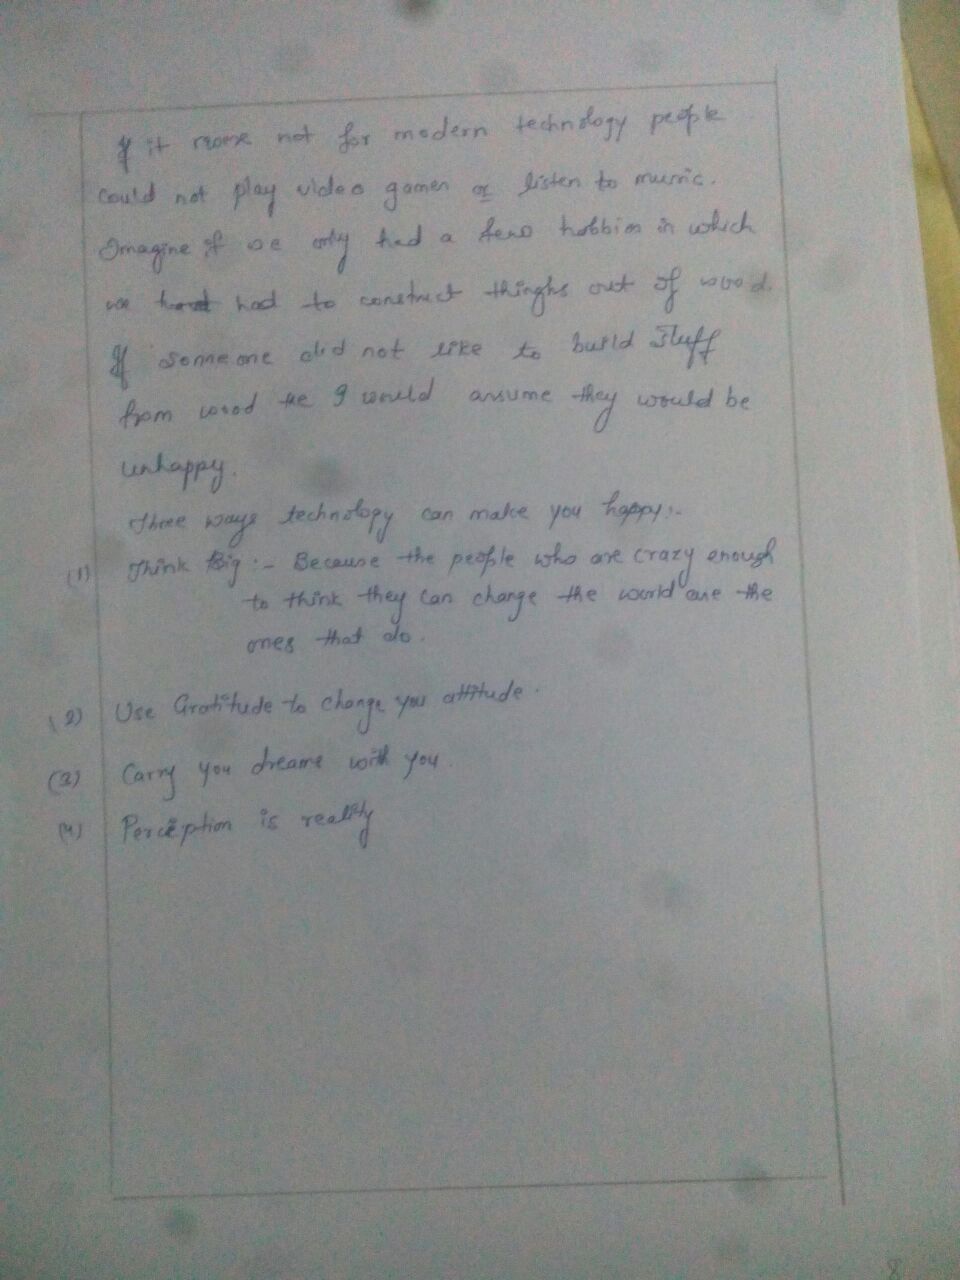 If it were not for modern technology people
could not play video games or listen to music.
Imagine if we only had a few hobbies in which
we had to construct thinghs out of wood.
If someone did not like to build stuff
from wood the I would assume they would be
unhappy.
Three ways technology can make you happy:-
(1) Think Big :- Because the people who are crazy enough
to think they can change the world are the
ones that do.
(2) Use Gratitude to change you attitude.
(3) Carry you dreame with you.
(4) Perception is reality
8